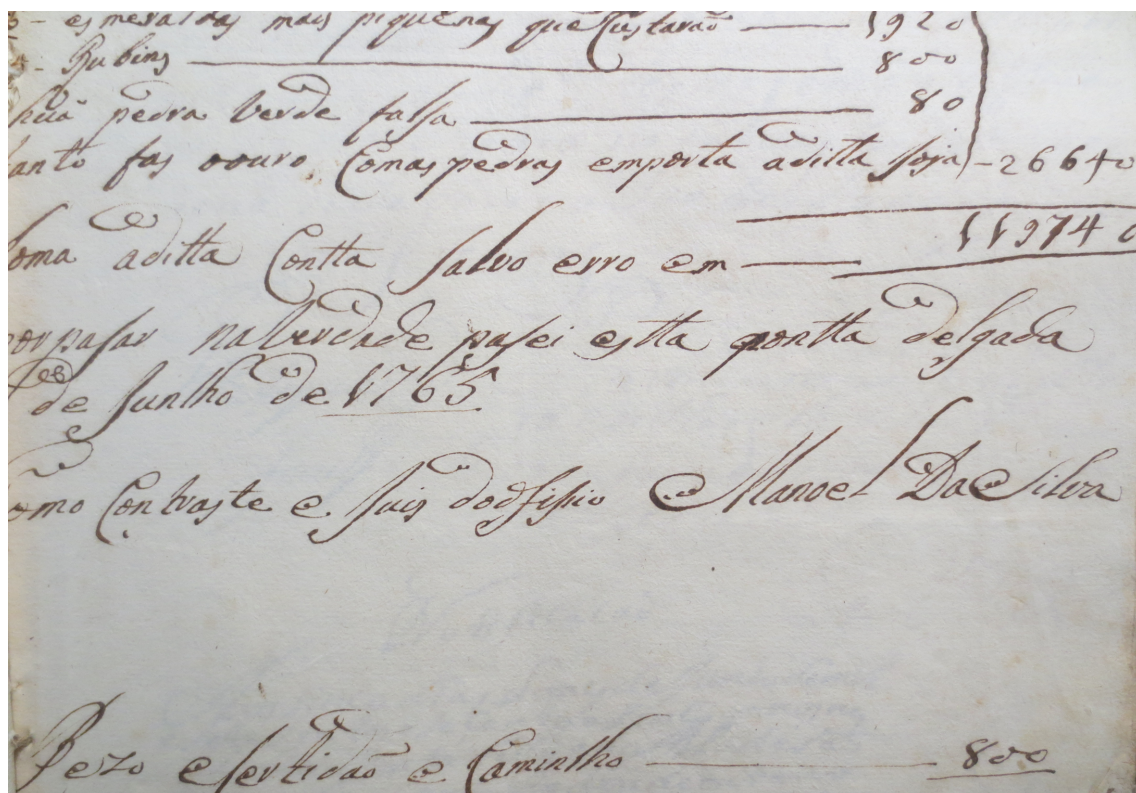 esmeraldas mais piquenas que Custarão — 1920
Rubins — 800
huã pedra verde falsa — 80
anto fas o ouro Comas pedras emporta aditta Joja — 26640
oma aditta Contta salvo erro em — 119740
por pasar na verdade pasei estta pontta delgada
de Junlho de 1765
omo Contraste e Juis do Manoel Da Silva
Pezo e sertidaõ e Caminlho — 800